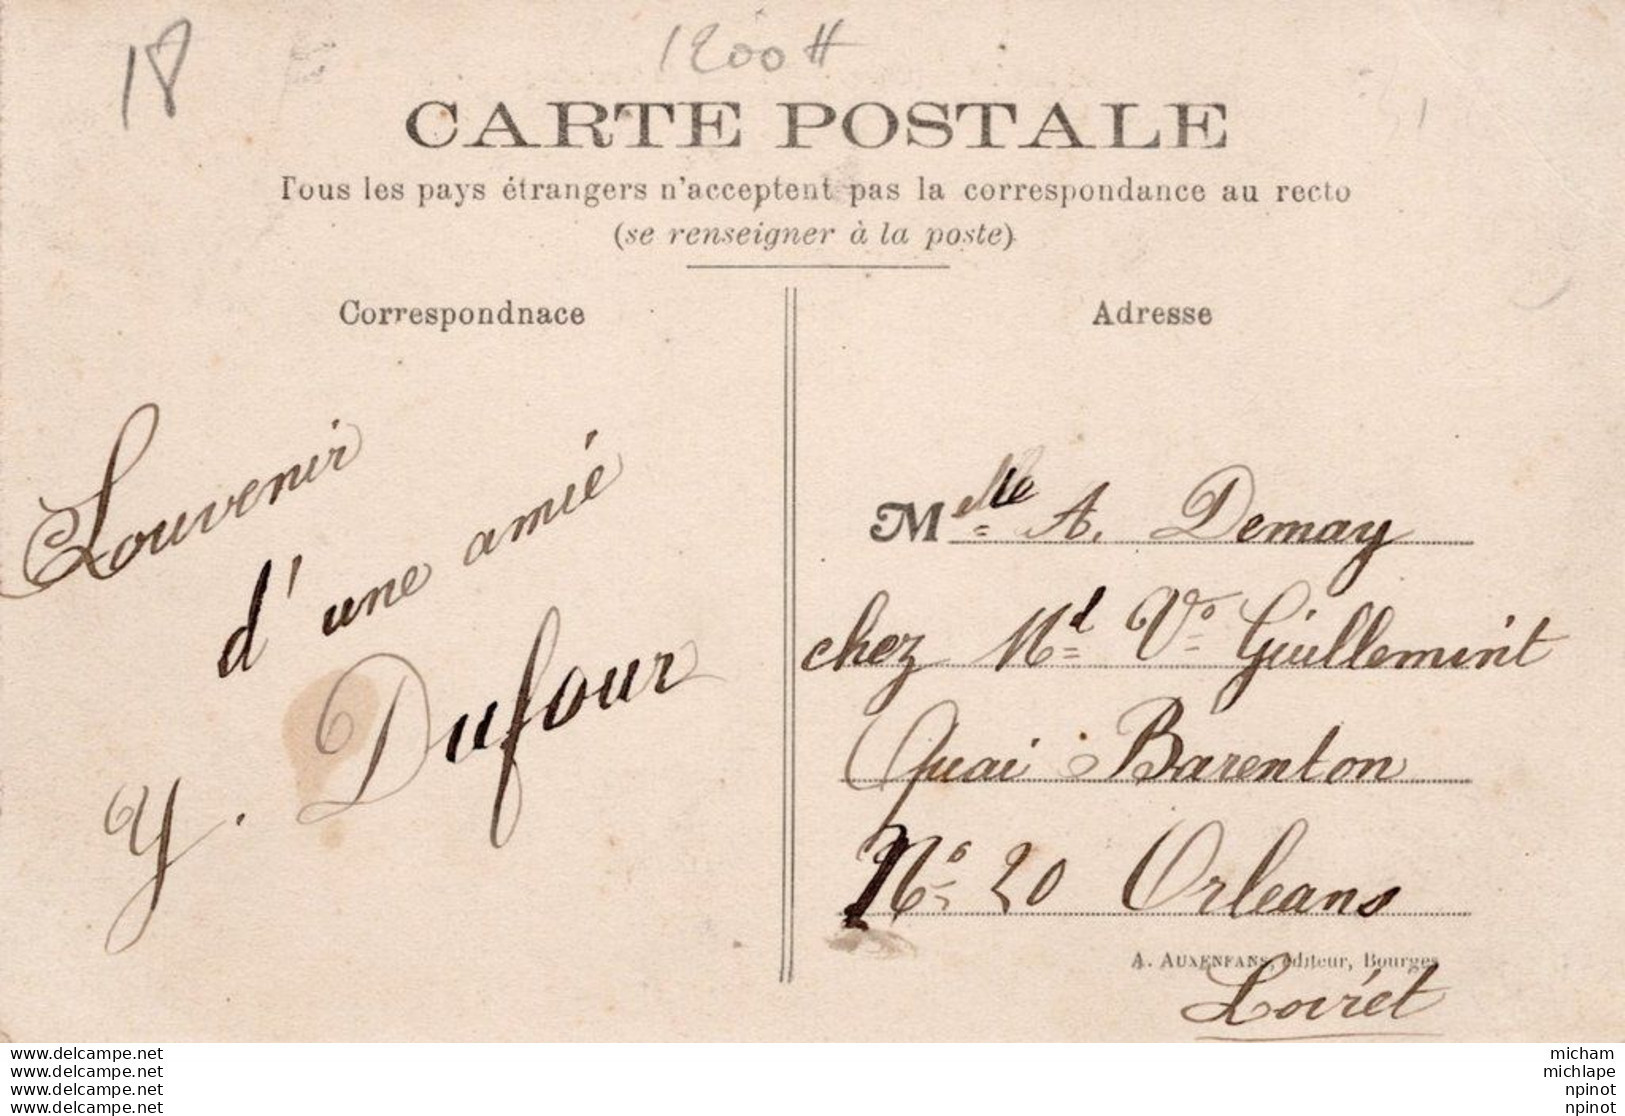 18
1200#
CARTE POSTALE
Tous les pays étrangers n'acceptent pas la correspondance au recto
(se renseigner à la poste)
Correspondnace
Souvenir
d'une amie
Y. Dufour
Adresse
Melle A. Demay
chez Md Vo Guilleminit
Quai Barenton
No 20 Orleans
A. AUXENFANS, éditeur, Bourges
Loiret
www.delcampe.net
www.delcampe.net
www.delcampe.net
www.delcampe.net
micham
michlape
npinot
npinot